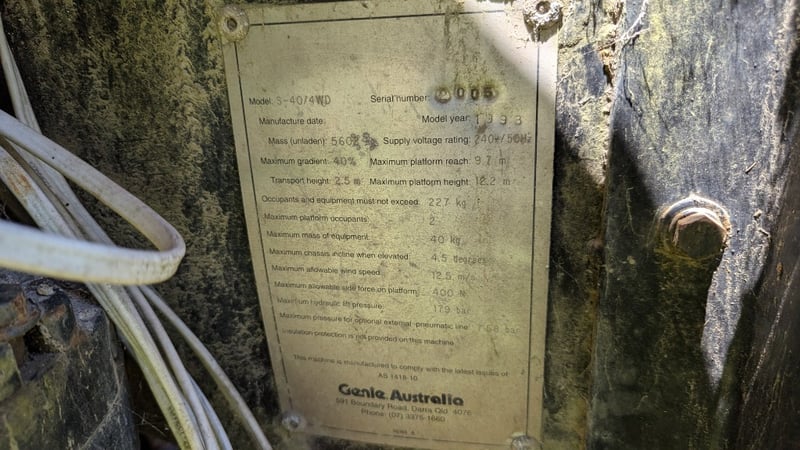 Model: S-40/4WD Serial number: 005
Manufacture date: Model year: 1993
Mass (unladen): Supply voltage rating: 240v/50Hz
Maximum gradient: 40% Maximum platform reach: 9.7 m
Transport height: 2.5 m Maximum platform height: 12.2 m
Occupants and equipment must not exceed: 227 kg
Maximum platform occupants: 2
Maximum mass of equipment: 40 kg
Maximum chassis incline when elevated: 4.5 degrees
Maximum allowable wind speed: 12.5 m/s
Maximum allowable side force on platform: 400 N
Maximum hydraulic lift pressure: 179 bar
Maximum pressure for optional external pneumatic line: bar
Insulation protection is not provided on this machine
This machine is manufactured to comply with the latest issues of
AS 1418-10
Genie Australia
591 Boundary Road, Darra Qld 4076
Phone: (07) 3375-1660